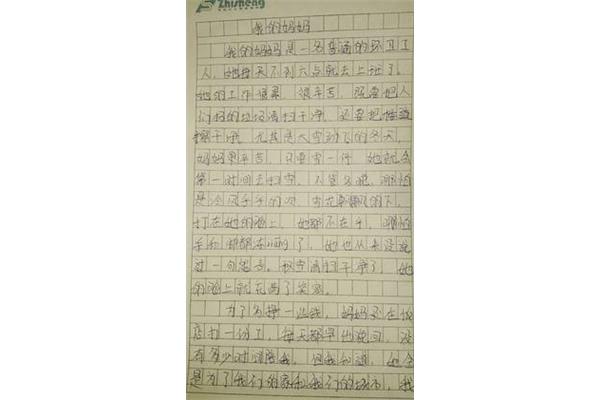 Zhisheng
我的妈妈
我的妈妈是一名普通的环卫工
人，她每天不到六点就去上班了。
她的工作很累，很辛苦，既要把人
们扔的垃圾清扫干净，还要把
擦干净。尤其是大雪纷飞的冬天，
妈妈更辛苦，只要雪一停，她就会
第一时间去扫雪，不管多晚，哪怕
是冷风的吹，雪花的下，
打在她的脸上，她都不在乎，哪怕
手和脚都冻了，她也从来没说
过一句怨言。积雪清扫干净了，她
的脸上就充满了笑容。
为了多挣一些钱，妈妈还在饭
店打一份工，每天都早出晚归，没
有多少时间陪我，但我知道，她全
是为了我们的家和我们的城市，我